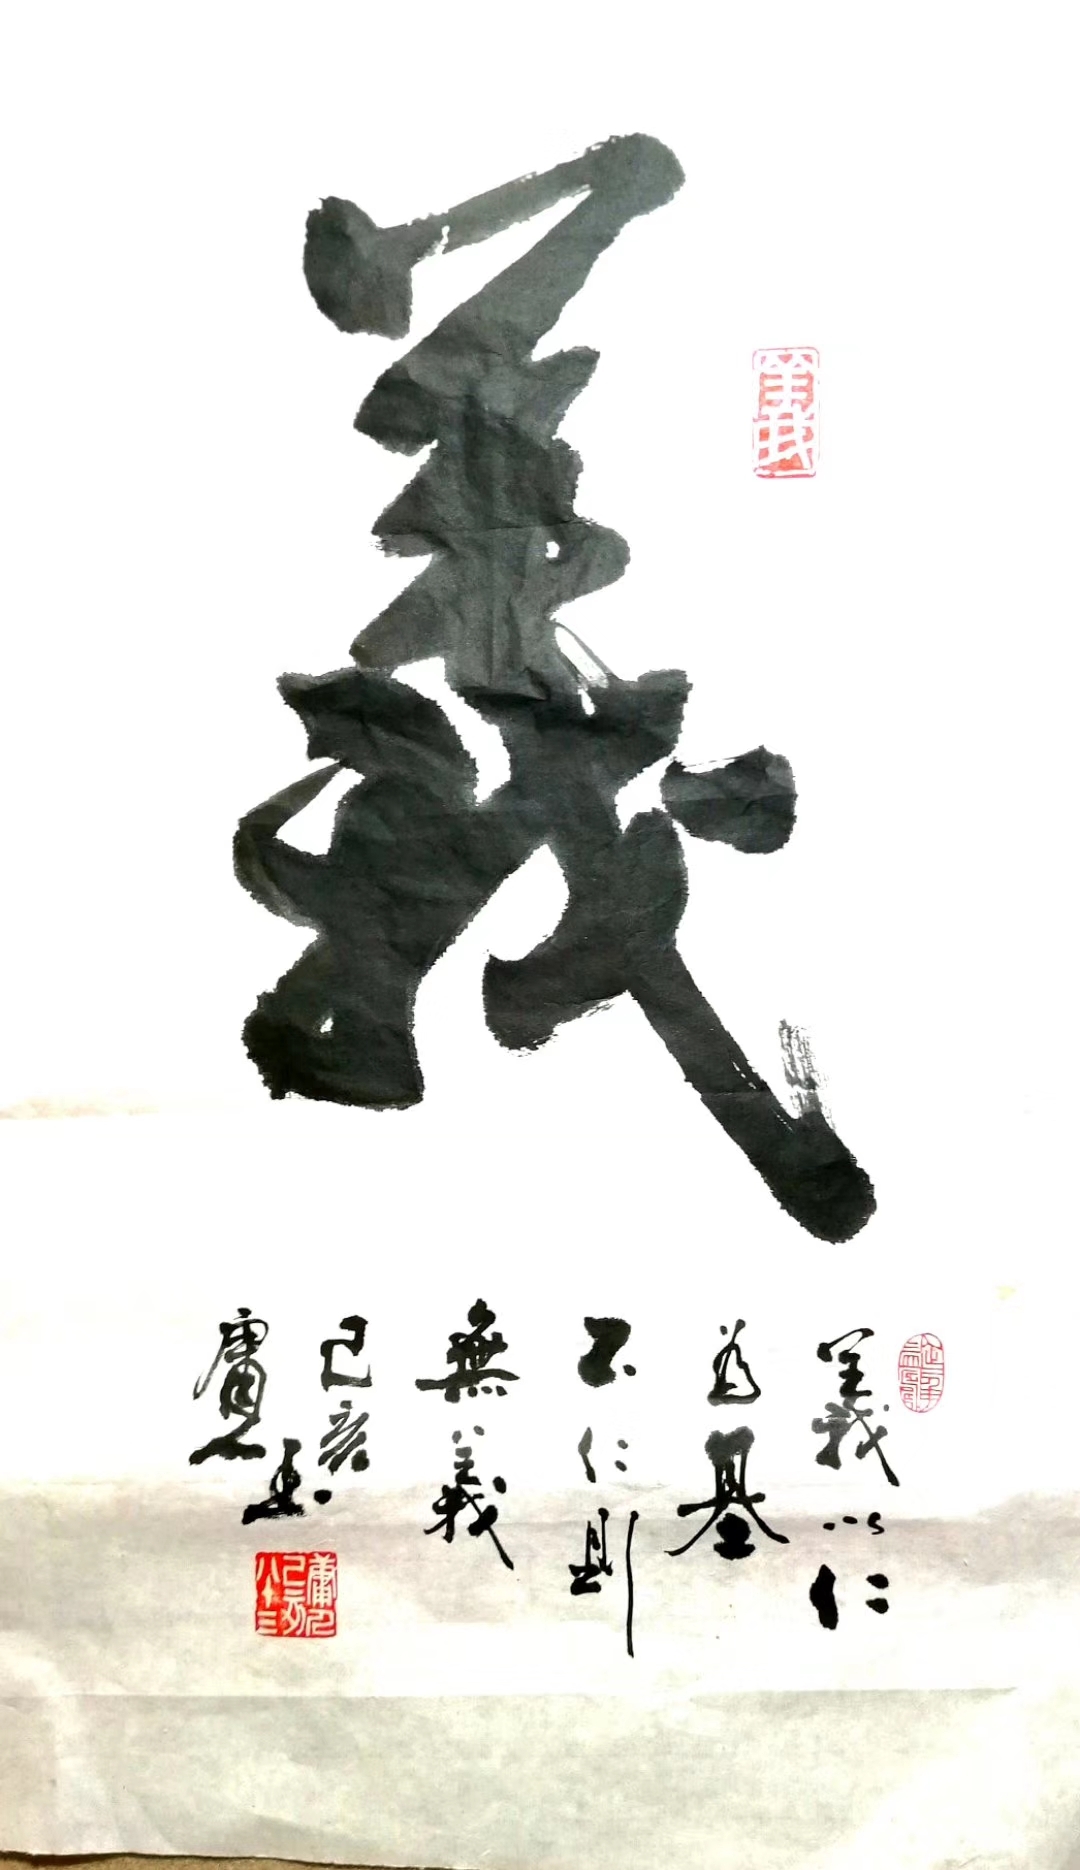 義
義
義以仁
為基
不仁則
無義
己亥